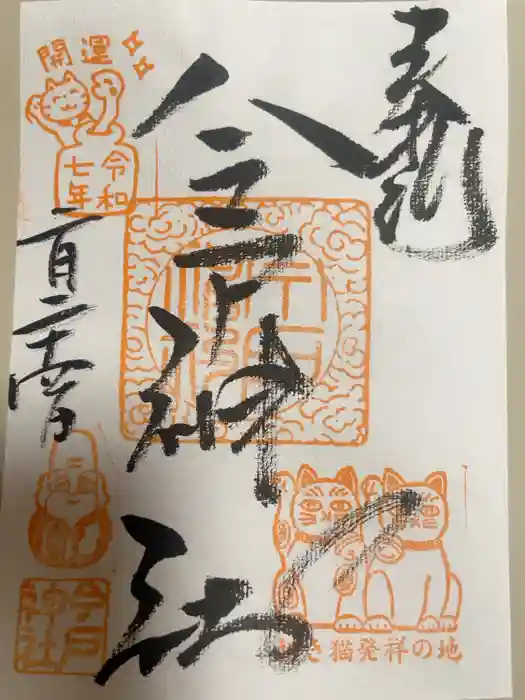 奉拝
今戸神社
開運
令和
七年
二月二十
今戸
神社
招き猫発祥の地